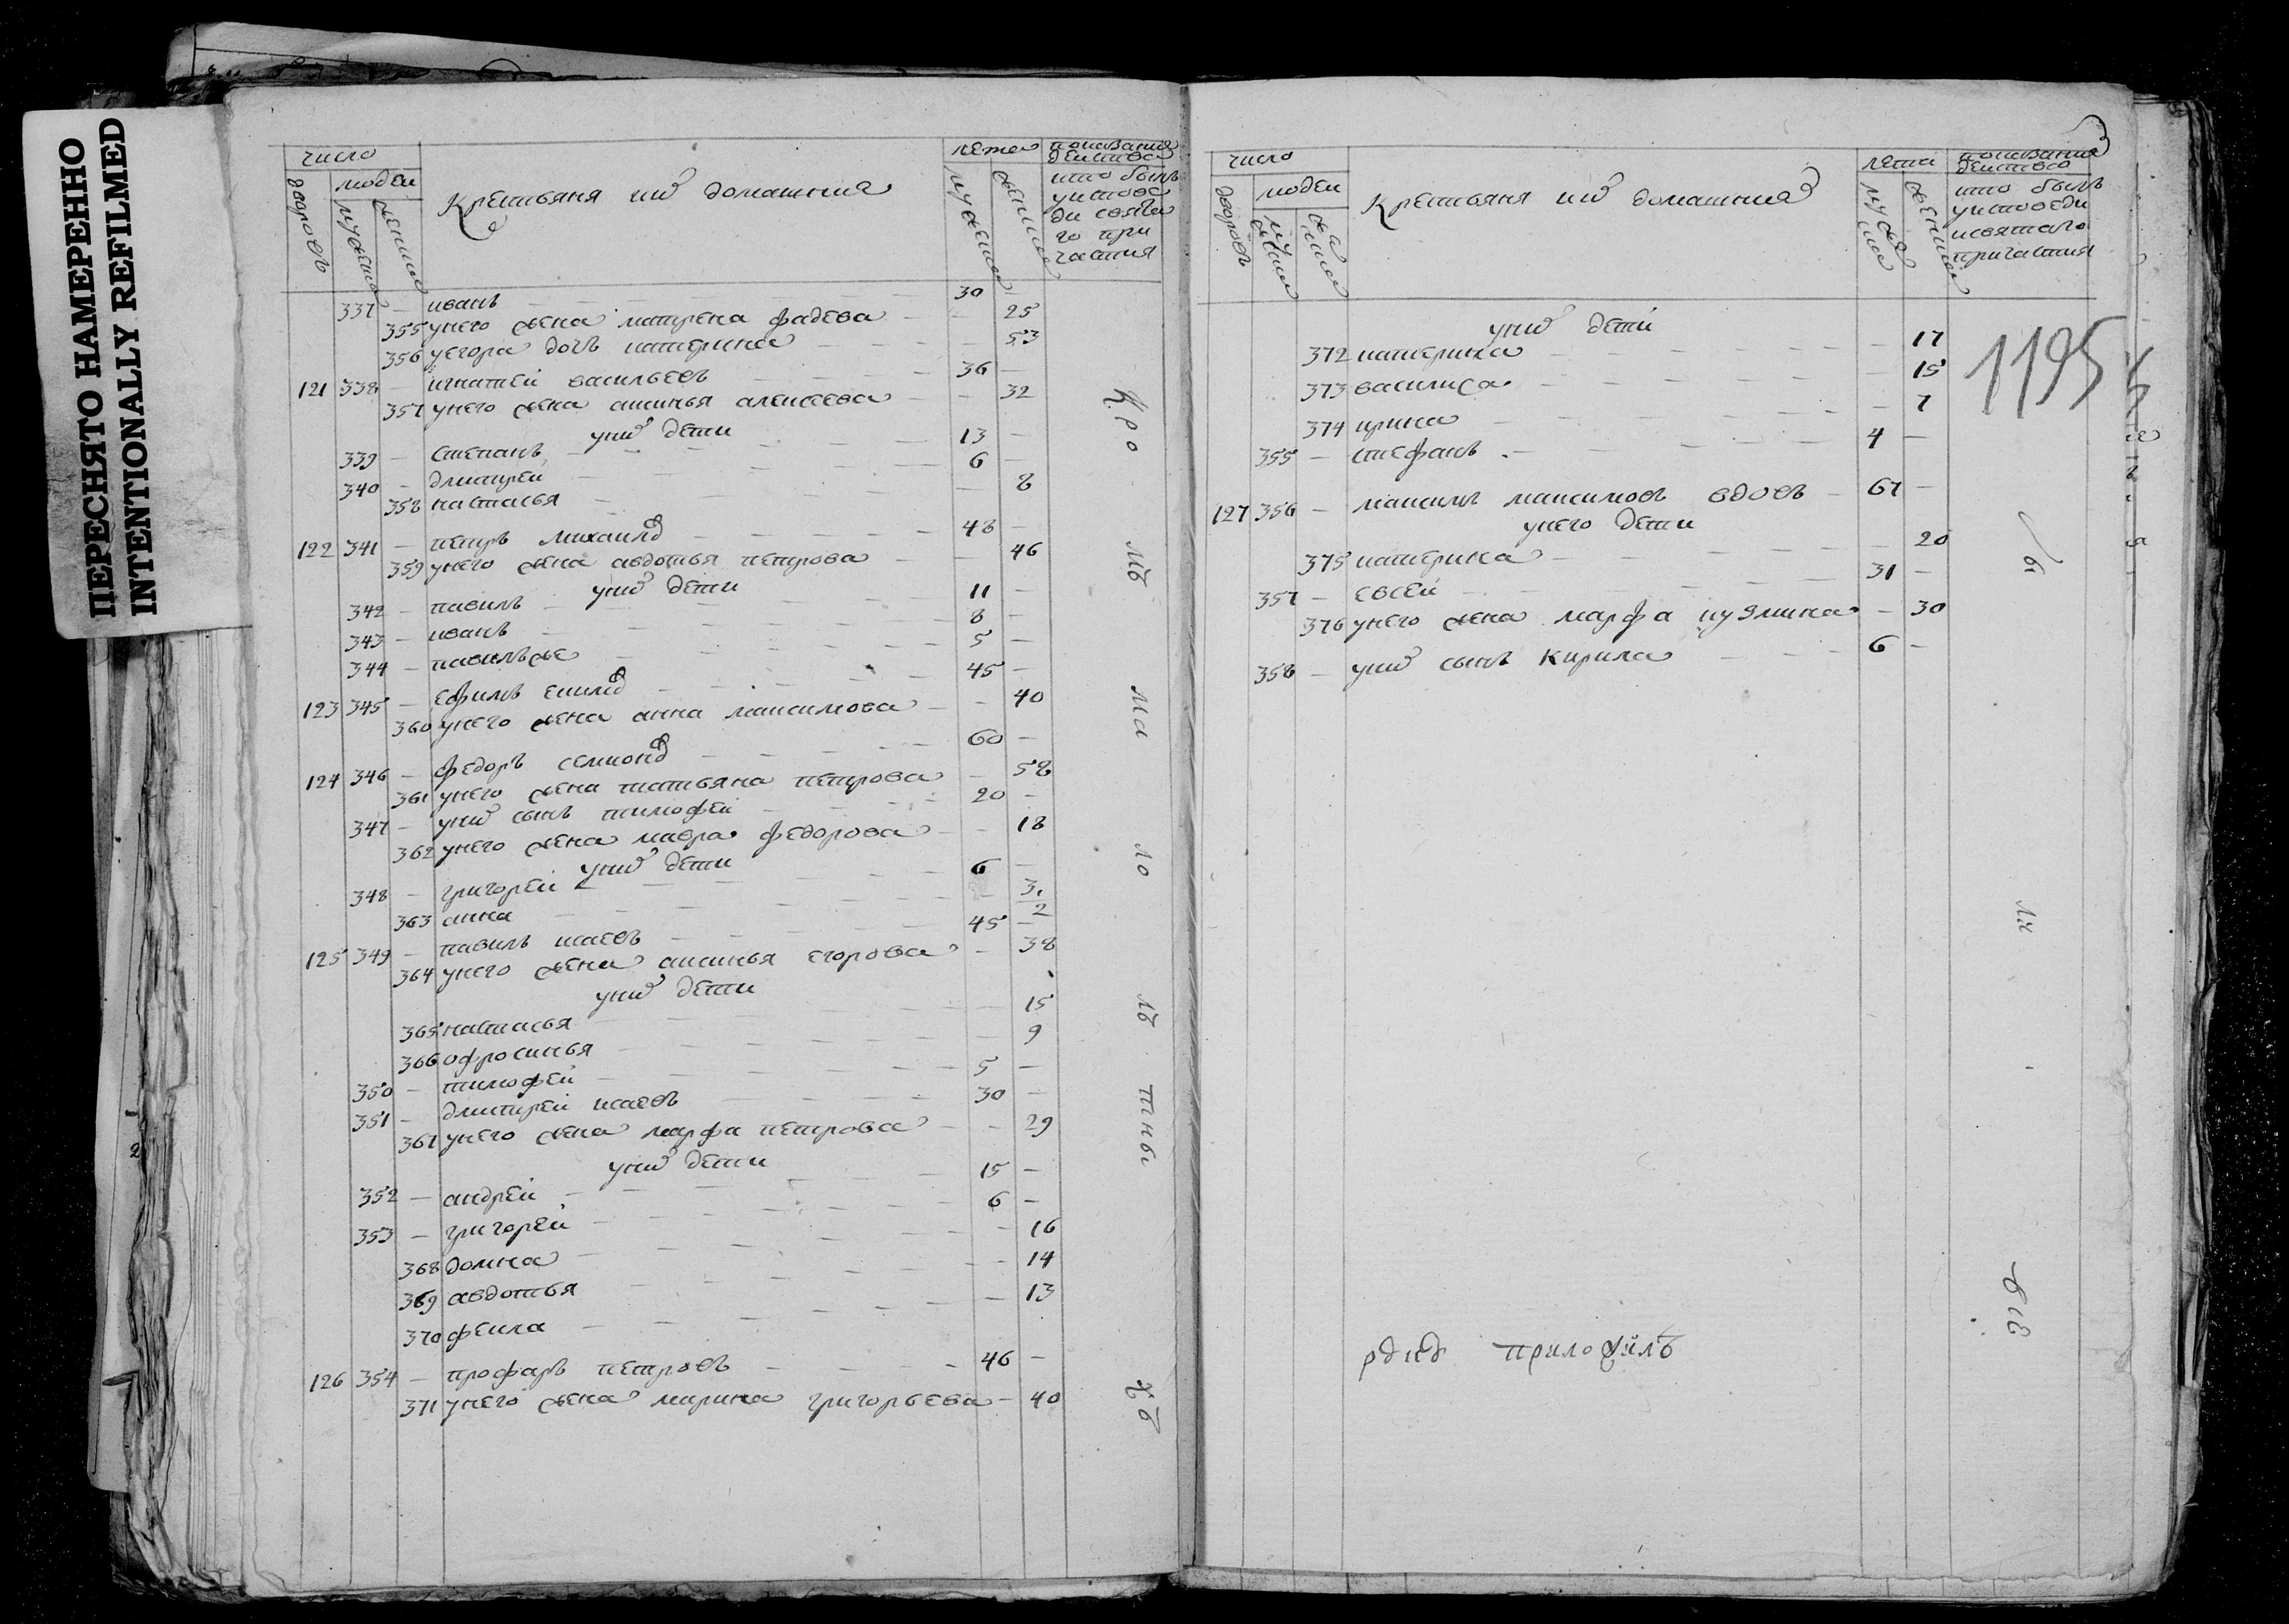 ПЕРЕСНЯТО НАМЕРЕННО
INTENTIONALLY REFILMED
число
людеи
дворовъ
Крестьяня ихъ домашния
лета
показания
деиства
кто былъ
уиспове
ди свята
го при
частия
337 — иванъ 30 —
355 унего жена матрена фадеева — 25
356 уегора дочь катерина — 53
121 338 — игнатеи васильевъ 36 —
357 унего жена аксинья алексеева — 32
унихъ дети
339 — степанъ 13 —
340 — дмитреи 6 —
358 настасья — 8
122 341 — петръ михаилов 48 —
359 унего жена авдотья петрова — 46
унихъ дети
342 — павилъ 11 —
343 — иванъ 8 —
344 — павилъже 5 —
123 345 — ефимъ 45 —
360 унего жена анна максимова — 40
124 346 — федоръ семионов 60 —
361 унего жена татьяна петрова — 58
347 — унихъ сынъ тимофеи 20 —
362 унего жена мавра федорова — 18
унихъ дети
348 — григореи 6 —
363 анна — 3 2
125 349 — павилъ исаевъ 45 —
364 унего жена аксинья егорова — 38
унихъ дети
365 настасья — 15
366 офросинья — 9
350 — тимофеи 5 —
351 — дмитреи исаевъ 30 —
367 унего жена марфа петрова — 29
унихъ дети
352 — андреи 15 —
353 — григореи 6 —
368 домна — 16
369 авдотья — 14
370 фекла — 13
126 354 — трофаръ петровъ 46 —
371 унего жена марина григорьева — 40
число
людеи
дворовъ
Крестьяня ихъ домашния
лета
показания
деиства
кто былъ
уисповеди
исвятаго
причастия
1195
унихъ дети
372 катерина — 17
373 василиса — 15
374 ирина — 7
355 — стефанъ 4 —
127 356 — максимъ максимовъ вдовъ 67 —
унего дети
375 катерина — 20
357 — евсеи 31 —
376 унего жена марфа кузмина — 30
358 — унихъ сынъ Кирила 6 —
приложилъ